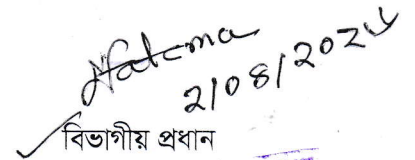 Fatema
2/08/2024
বিভাগীয় প্রধান